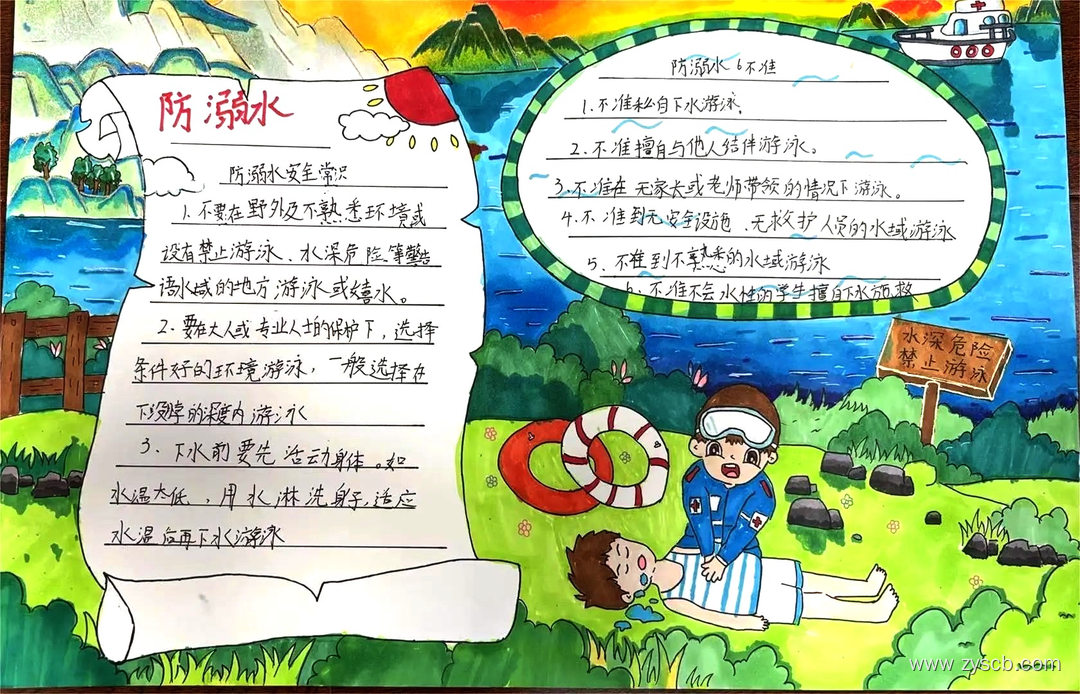 防溺水
防溺水安全常识
1. 不要在野外及不熟悉环境或
设有禁止游泳、水深危险等警告
语水域的地方游泳或嬉水。
2. 要在大人或专业人士的保护下，选择
条件好的环境游泳，一般选择在
的深度内游泳
3、下水前要先活动身体。如
水温太低、用水淋洗身子,适应
水温后再下水游泳
防溺水6不准
1.不准私自下水游泳
2.不准擅自与他人结伴游泳。
3.不准在无家长或老师带领的情况下游泳。
4.不准到无安全设施、无救护人员的水域游泳
5、不准到不熟悉的水域游泳
6、不准不会水性的学生擅自下水施救
水深危险
禁止游泳
www.zyscb.com